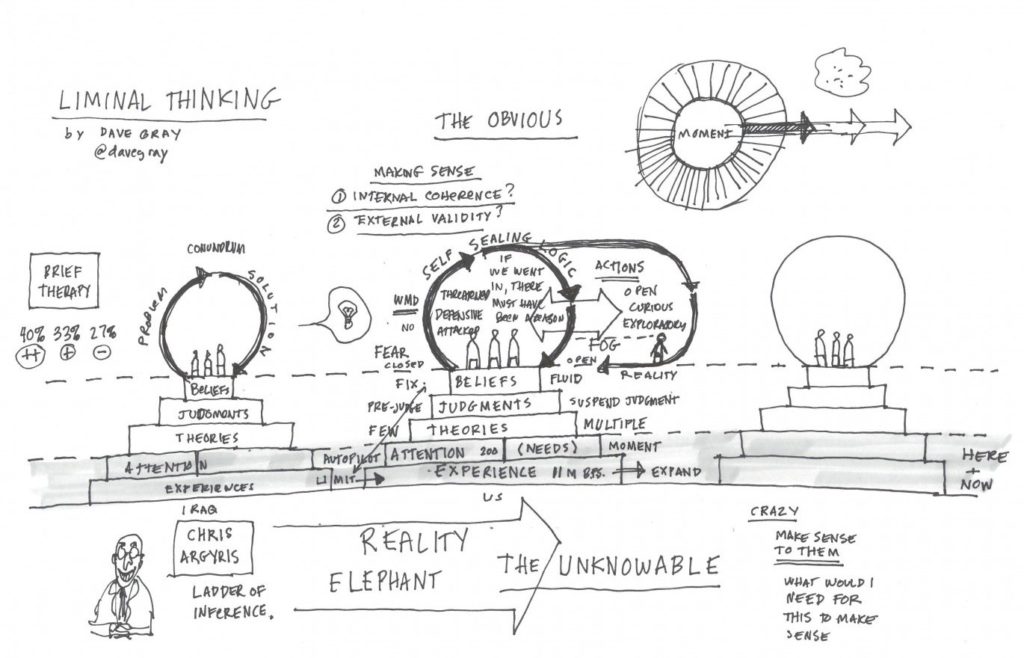 LIMINAL THINKING
by DAVE GRAY
@davegray
THE OBVIOUS
MOMENT
MAKING SENSE
① INTERNAL COHERENCE?
② EXTERNAL VALIDITY?
BRIEF
THERAPY
40% 33% 27%
++ + -
CONUNDRUM
PROBLEM
SOLUTION
BELIEFS
JUDGMENTS
THEORIES
ATTENTION
EXPERIENCES
SELF SEALING LOGIC
IF
WE WENT
IN, THERE
MUST HAVE
BEEN A REASON
THREATENED
DEFENSIVE
ATTACKED
WMD
NO
ACTIONS
OPEN
CURIOUS
EXPLORATORY
FOG
REALITY
FEAR
CLOSED
FIX.
PRE-JUDGE
FEW
AUTOPILOT
LIMIT
BELIEFS
JUDGMENTS
THEORIES
ATTENTION 200 (NEEDS)
EXPERIENCE 11 M BPS.
OPEN
FLUID
SUSPEND JUDGMENT
MULTIPLE
MOMENT
EXPAND
HERE
+
NOW
IRAQ
CHRIS
ARGYRIS
LADDER OF
INFERENCE.
US
REALITY
ELEPHANT
THE UNKNOWABLE
CRAZY
MAKE SENSE
TO THEM
WHAT WOULD I
NEED FOR
THIS TO MAKE
SENSE